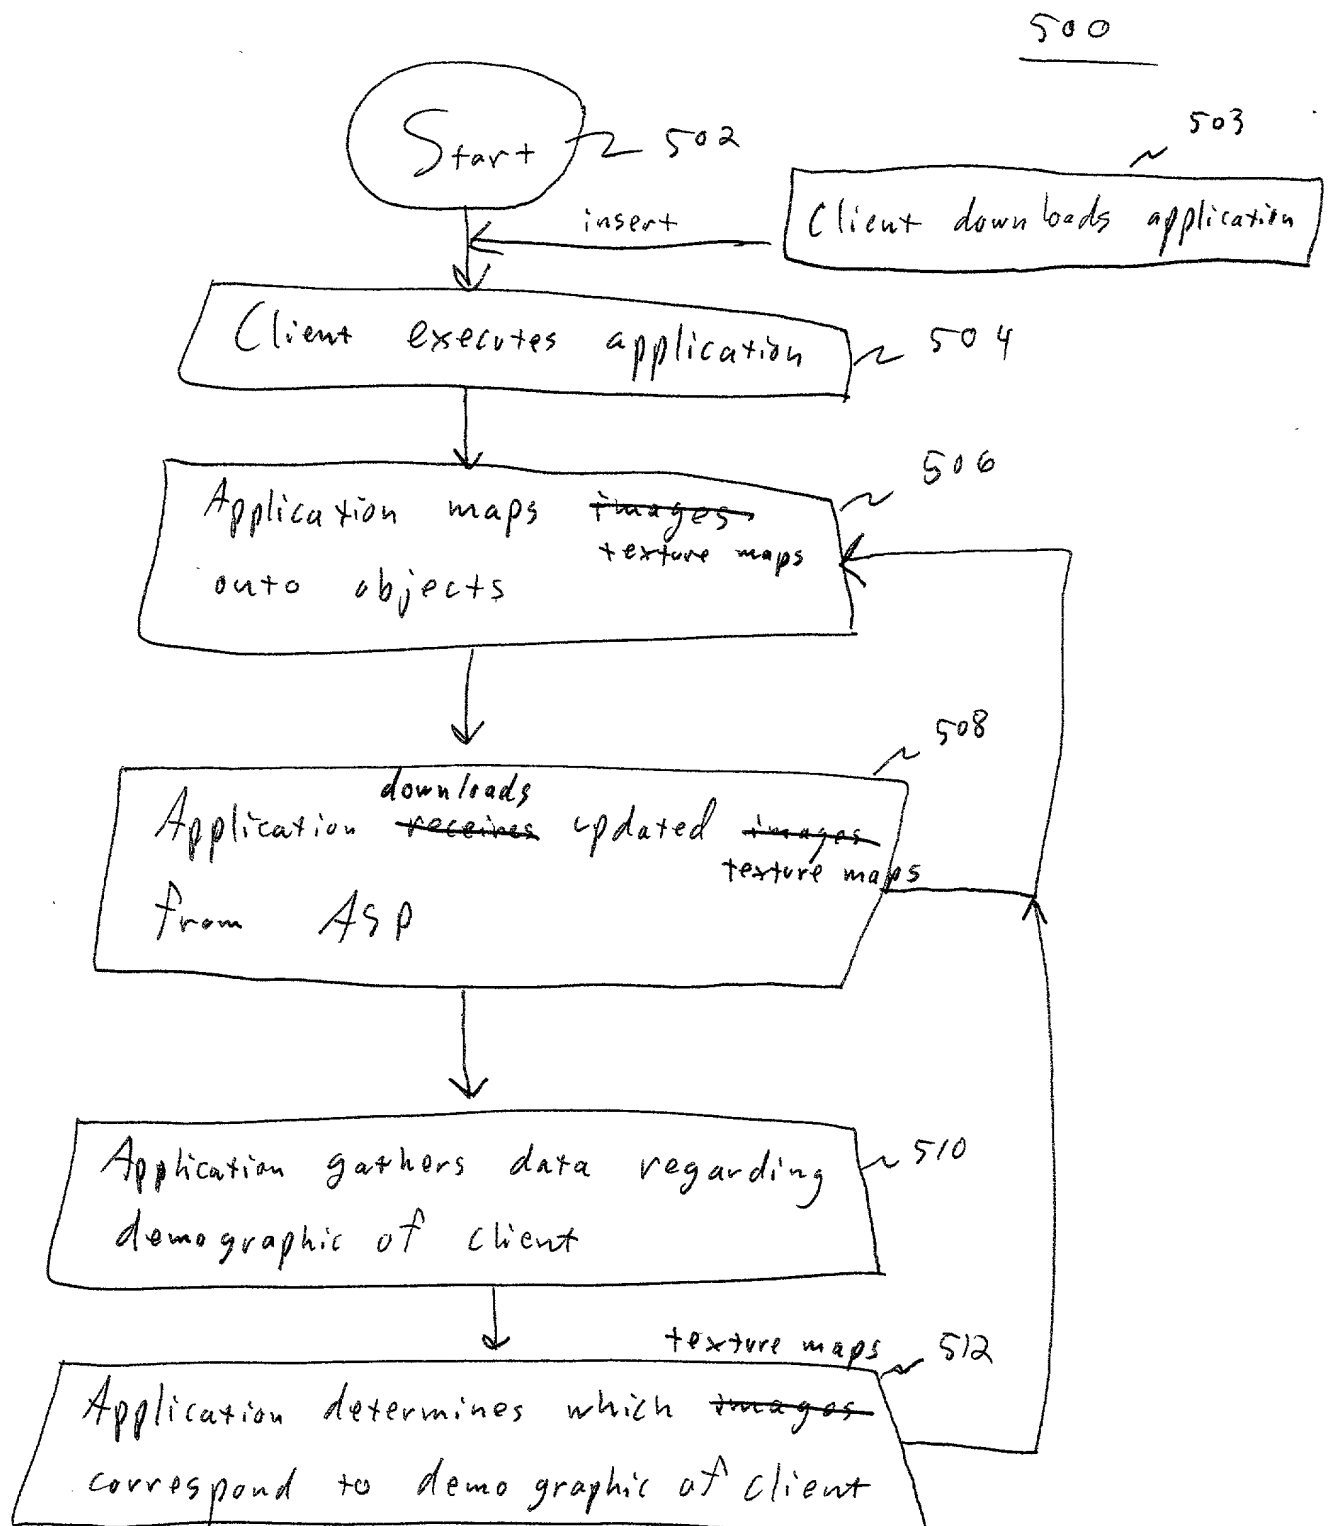 500
Start
502
503
insert
Client downloads application
Client executes application
504
506
Application maps images
texture maps
onto objects
508
downloads
Application receives updated images
texture maps
from ASP
510
Application gathers data regarding
demographic of client
texture maps
512
Application determines which images
correspond to demographic of client